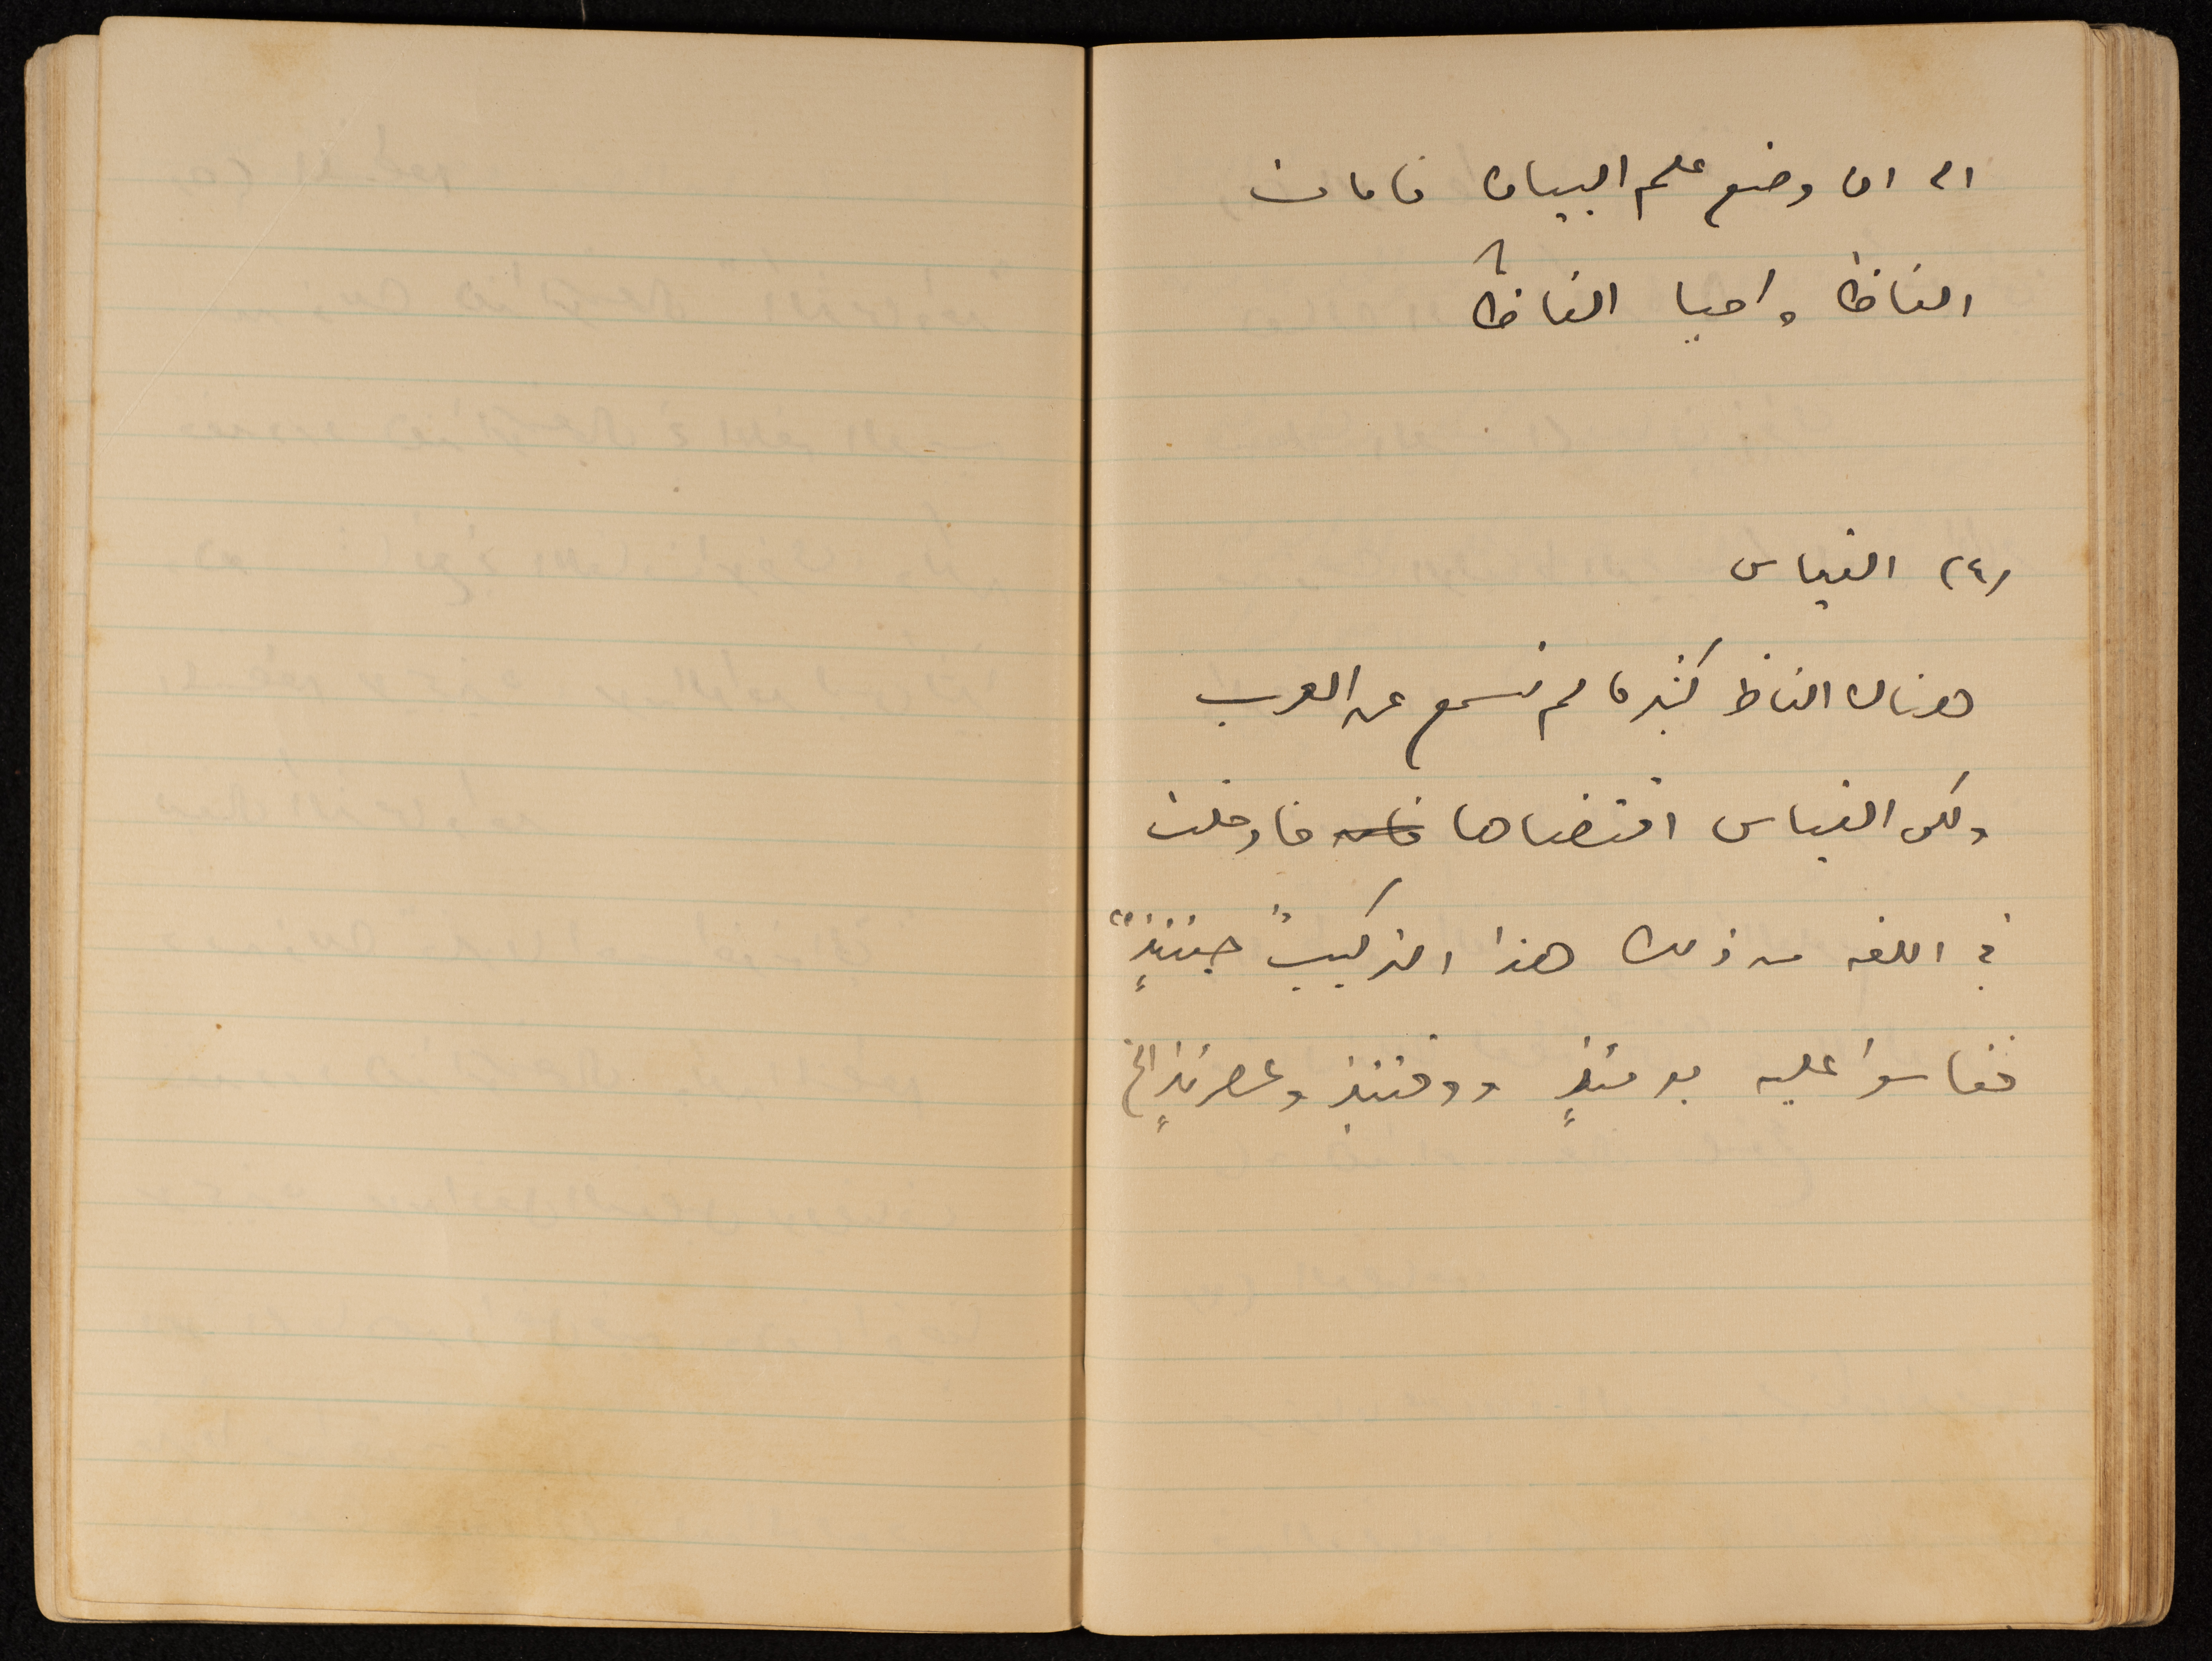 الى ان وضع علم البيان فامات
الفاظا واحيا الفاظاً
(٤) القياس
هناك الفاظ كثيرة لم تسمع عن العرب
ولكن القياس اقتضاها فادخلت
في اللغه من ذلك هذا التركيب "حينئذٍ"
فقاسوا عليه يومئذٍ ووقتئذ وعصرئذٍ الخ